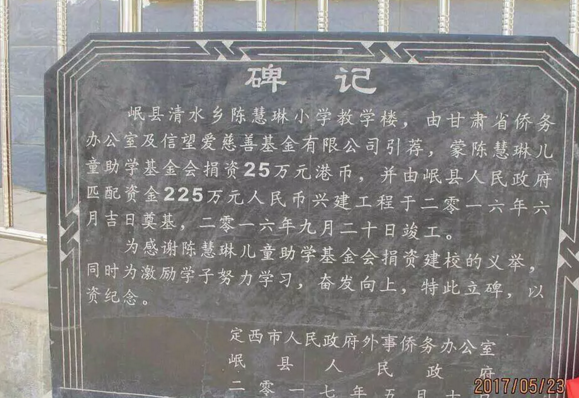 碑记
岷县清水乡陈慧琳小学教学楼，由甘肃省侨务
办公室及信望爱慈善基金有限公司引荐，蒙陈慧琳儿
童助学基金会捐资25万元港币，并由岷县人民政府
匹配资金225万元人民币兴建工程于二零一六年六
月吉日奠基，二零一六年九月二十日竣工。
为感谢陈慧琳儿童助学基金会捐资建校的义举，
同时为激励学子努力学习，奋发向上，特此立碑，以
资纪念。
定西市人民政府外事侨务办公室
岷县人民政府
二零一七年五月十日
2017/05/23